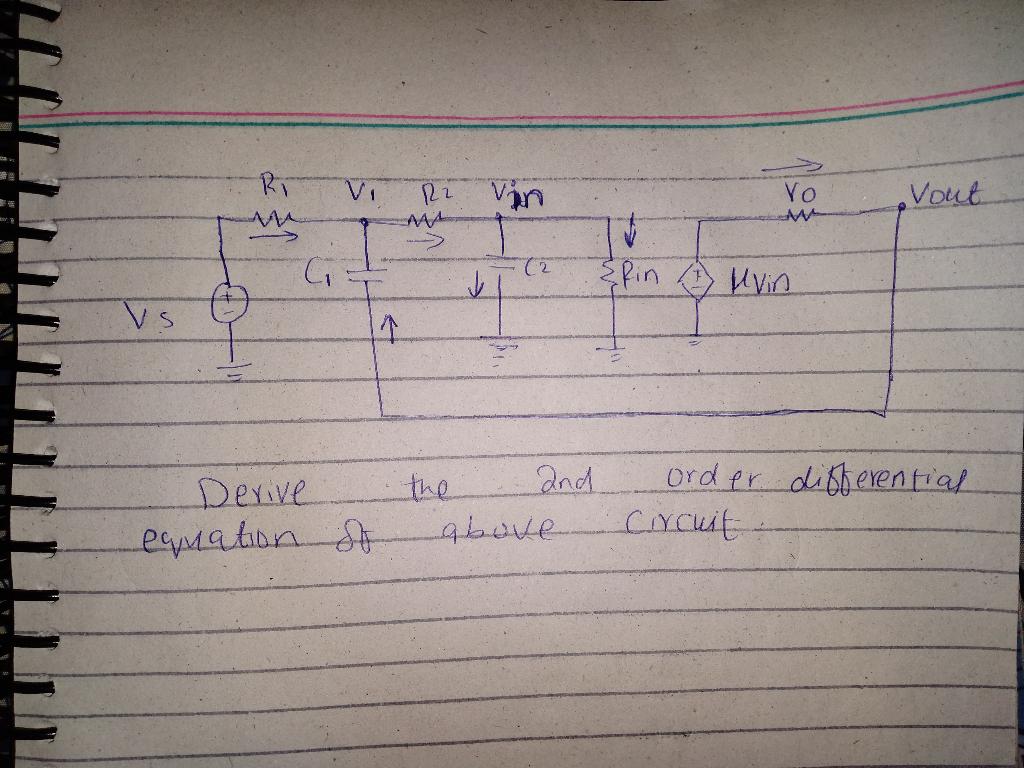 R1 V1 R2 Vin ro Vout
C1 C2 Rin μvin
Vs
Derive the 2nd order differential
equation of above circuit